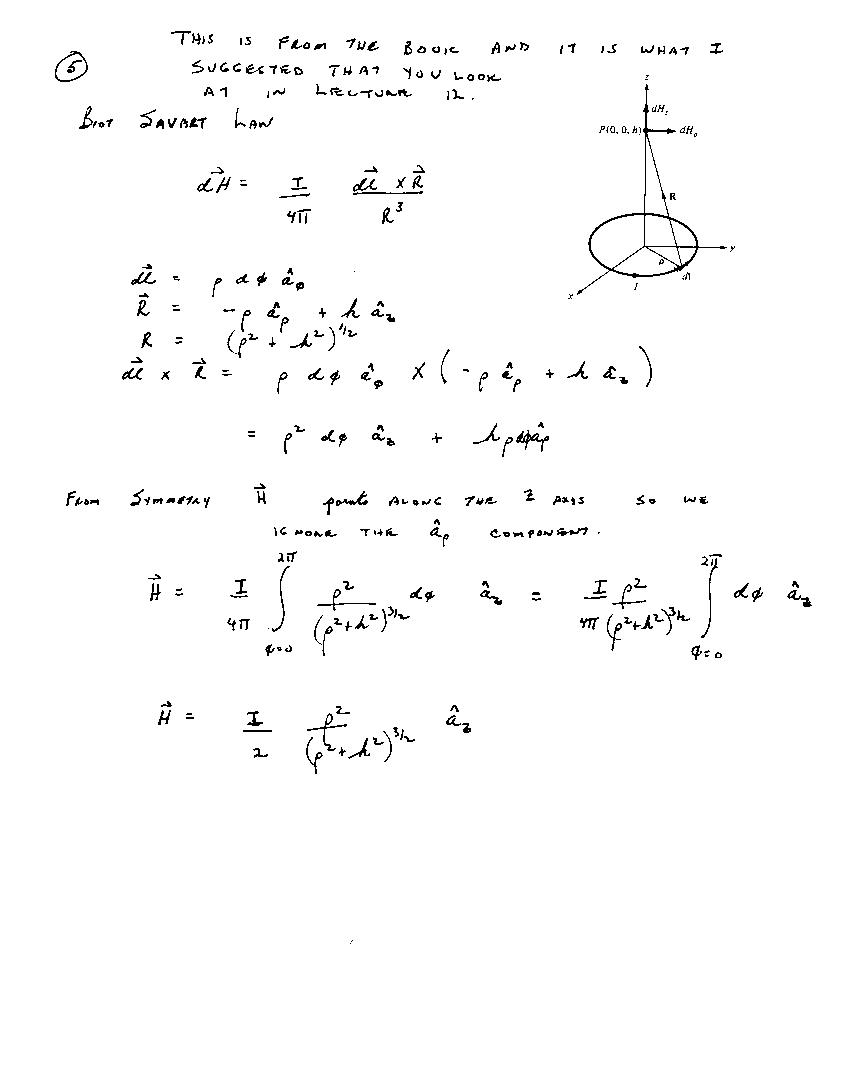 THIS IS FROM THE BOOK AND IT IS WHAT I
5 SUGGESTED THAT YOU LOOK
AT IN LECTURE 12.
BIOT SAVART LAW
z
dH_z
P(0, 0, h) dH_ρ
R
y
ρ
dl
x
I
dH⃗ = I/4π dl⃗ × R⃗ / R³
dl⃗ = ρ dφ â_φ
R⃗ = -ρ â_ρ + h â_z
R = (ρ² + h²)^1/2
dl⃗ × R⃗ = ρ dφ â_φ × (-ρ â_ρ + h â_z)
= ρ² dφ â_z + hρdφâ_ρ
FROM SYMMETRY H⃗ points ALONG THE Z AXIS SO WE
IGNORE THE â_ρ COMPONENT.
H⃗ = I/4π ∫_{φ=0}^{2π} ρ²/(ρ²+h²)^3/2 dφ â_z = I/4π ρ²/(ρ²+h²)^3/2 ∫_{φ=0}^{2π} dφ â_z
H⃗ = I/2 ρ²/(ρ²+h²)^3/2 â_z